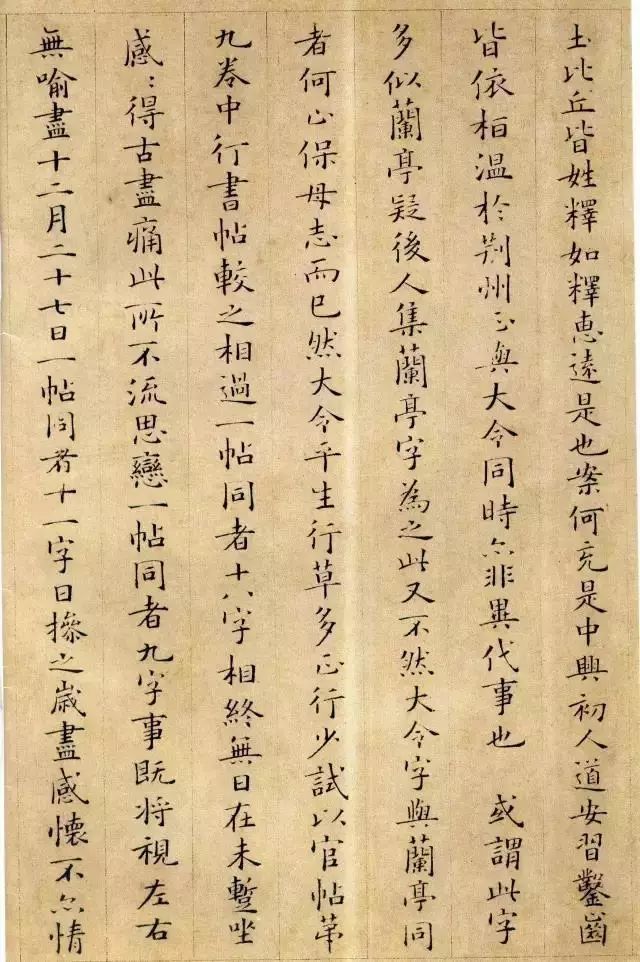 土比丘皆姓釋如釋惠遠是也案何充是中興初人道安習鑿齒
皆依桓溫於荆州正與大令同時亦非異代事也 或謂此字
多似蘭亭疑後人集蘭亭字為之此又不然大令字與蘭亭同
者何止保母志而已然大令平生行草多正行少試以官帖第
九卷中行書帖較之相過一帖同者十八字相終無日在未蹔坐
感:得古盡痛此所不流思戀一帖同者九字事既將視左右
無喻盡十二月二十七日一帖同者十一字日操之歲盡感懷不亦情